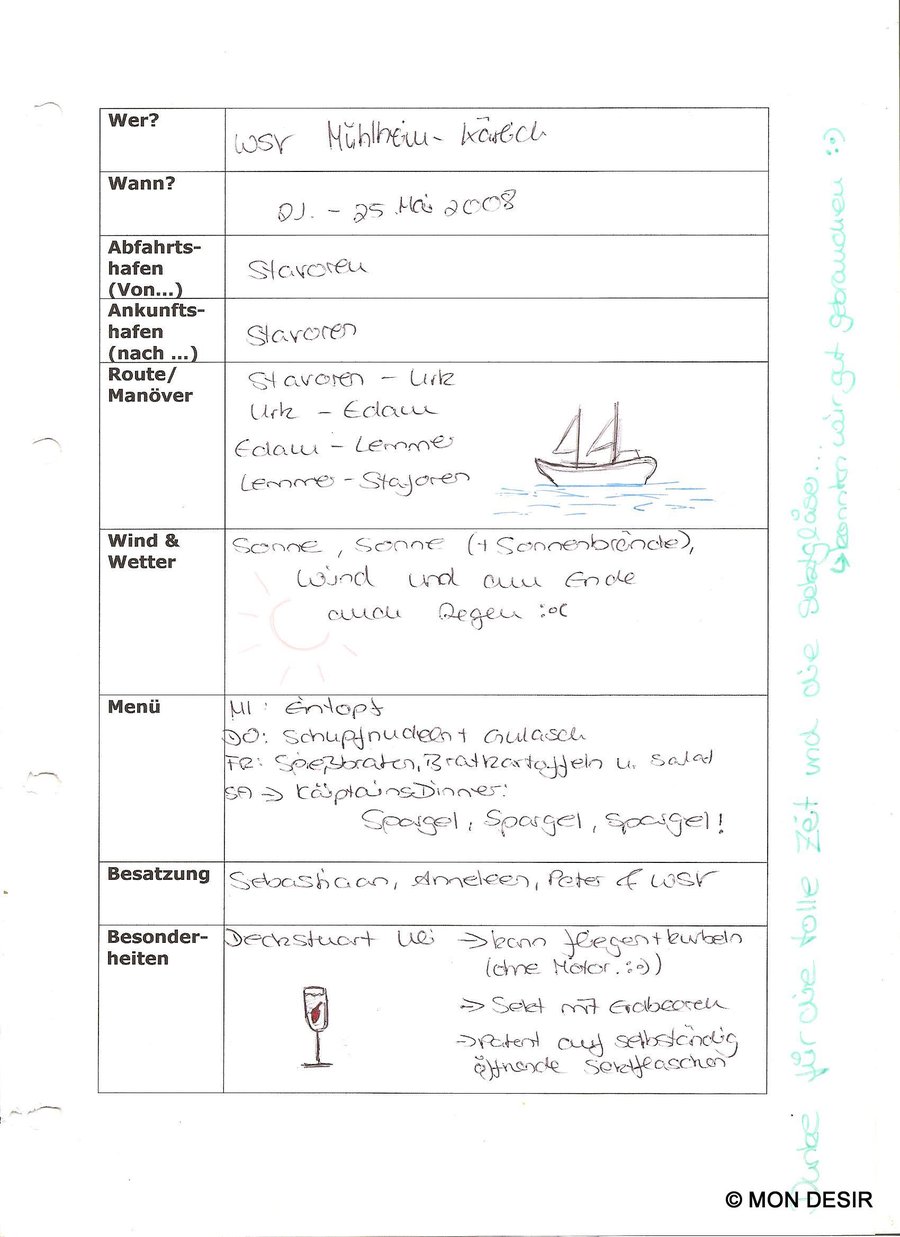 Wer?
WSV Mühlheim-Kärlich
Wann?
21. - 25 Mai 2008
Abfahrts-
hafen
(Von...)
Stavoren
Ankunfts-
hafen
(nach ...)
Stavoren
Route/
Manöver
Stavoren - Urk
Urk - Edam
Edam - Lemmer
Lemmer - Stavoren
Wind &
Wetter
Sonne, Sonne (+ Sonnenbrände),
Wind und am Ende
auch Regen :o(
Menü
MI: Eintopf
DO: Schupfnudeln + Gulasch
FR: Spießbraten, Bratkartoffeln u. Salat
SA => Käptains Dinner:
Spargel, Spargel, Spargel!
Besatzung
Sebastiaan, Anneleen, Peter & WSV
Besonder-
heiten
Deckstuart Uli -> kann fliegen + kurbeln
(ohne Motor. :o))
=> Sekt mit Erdbeeren
=> Patent auf selbständig
öffnende Sektflaschen
Danke für die tolle Zeit und die Sektgläser...
↳ konnten wir gut gebrauchen :o)
© MON DESIR